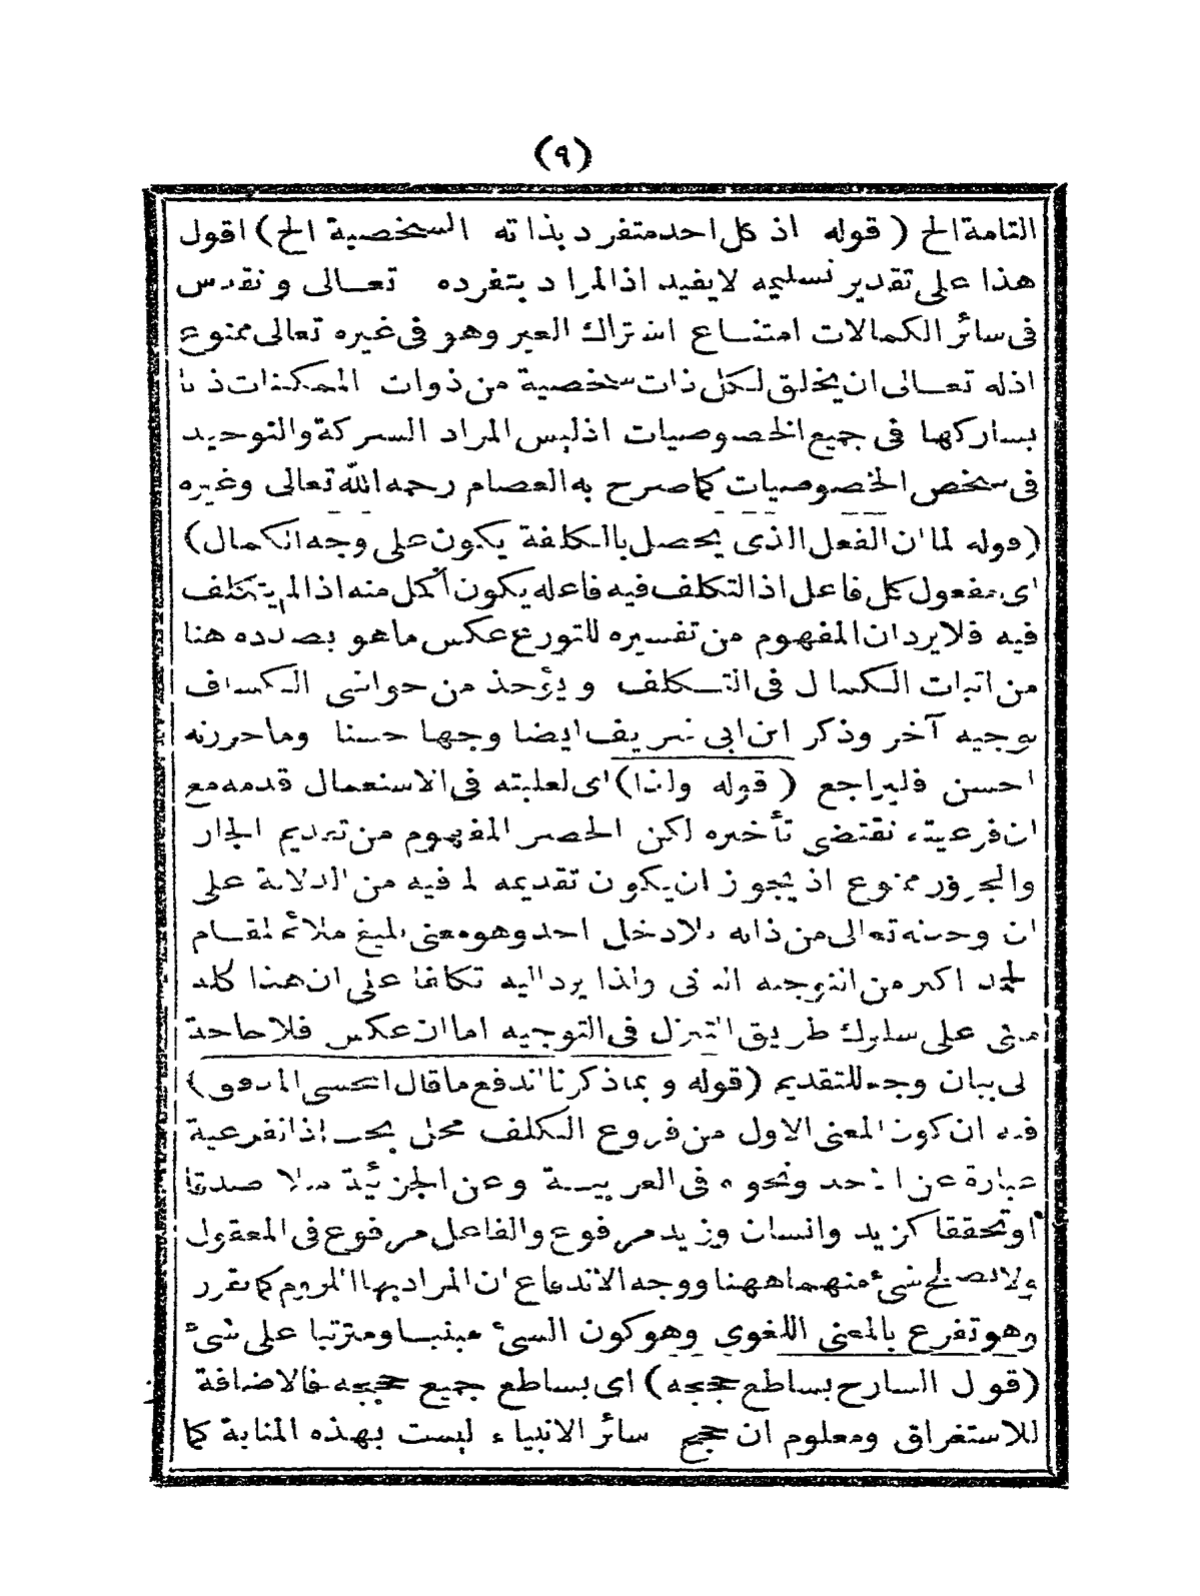 (٩)
التامة الخ ( قوله اذ كل احد متفرد بذاته الشخصية الخ ) اقول
هذا على تقدير تسليمه لا يفيد اذ المراد بتفرده تعالى وتقدس
فى سائر الكمالات امتناع اشتراك الغير وهو فى غيره تعالى ممنوع
اذ له تعالى ان يخلق لكل ذات شخصية من ذوات الممكنات ذاتا
يشاركها فى جميع الخصوصيات اذ ليس المراد الشركة والتوحيد
فى شخص الخصوصيات كما صرح به العصام رحمه الله تعالى وغيره
(قوله لما ان الفعل الذى يحصل بالكلفة يكون على وجه الكمال)
اى مفعول كل فاعل اذا التكلف فيه فاعله يكون أكمل منه اذا لم يتكلف
فيه فلا يرد ان المفهوم من تفسيره للتورع عكس ما هو بصدده هنا
من اثبات الكمال فى التكلف ويؤخذ من حواشى الكشاف
توجيه آخر وذكر ابن ابى شريف ايضا وجها حسنا وما حررته
احسن فليراجع ( قوله ولذا) اى لغلبته فى الاستعمال قدمه مع
ان فرعيته تقتضى تأخيره لكن الحصر المفهوم من تقديم الجار
والمجرور ممنوع اذ يجوز ان يكون تقديمه لما فيه من الدلالة على
ان وحدته تعالى من ذاته بلا دخل احد وهو معنى بليغ ملائم لمقام
الحمد اكثر من التوجيه الثانى ولذا يرد اليه تكلفا على ان هذا كله
مبنى على سلوك طريق التنزل فى التوجيه اما ان عكس فلا حاجة
الى بيان وجه للتقديم (قوله وبما ذكرنا اندفع ما قال المحشى المدقق)
فيه ان كون المعنى الاول من فروع التكلف محل بحث اذ الفرعية
عبارة عن الاخذ ونحوه فى العربية وعن الجزئية مثلا صدقا
او تحققا كزيد وانسان وزيد مرفوع والفاعل مرفوع فى المعقول
ولا يصلح شئ منهما ههنا ووجه الاندفاع ان المراد بها اللزوم كما تقرر
وهو تفرع بالمعنى اللغوى وهو كون الشئ مبنيا ومترتبا على شئ
(قول الشارح بساطع حججه) اى بساطع جميع حججه فالاضافة
للاستغراق ومعلوم ان حجج سائر الانبياء ليست بهذه المثابة كما